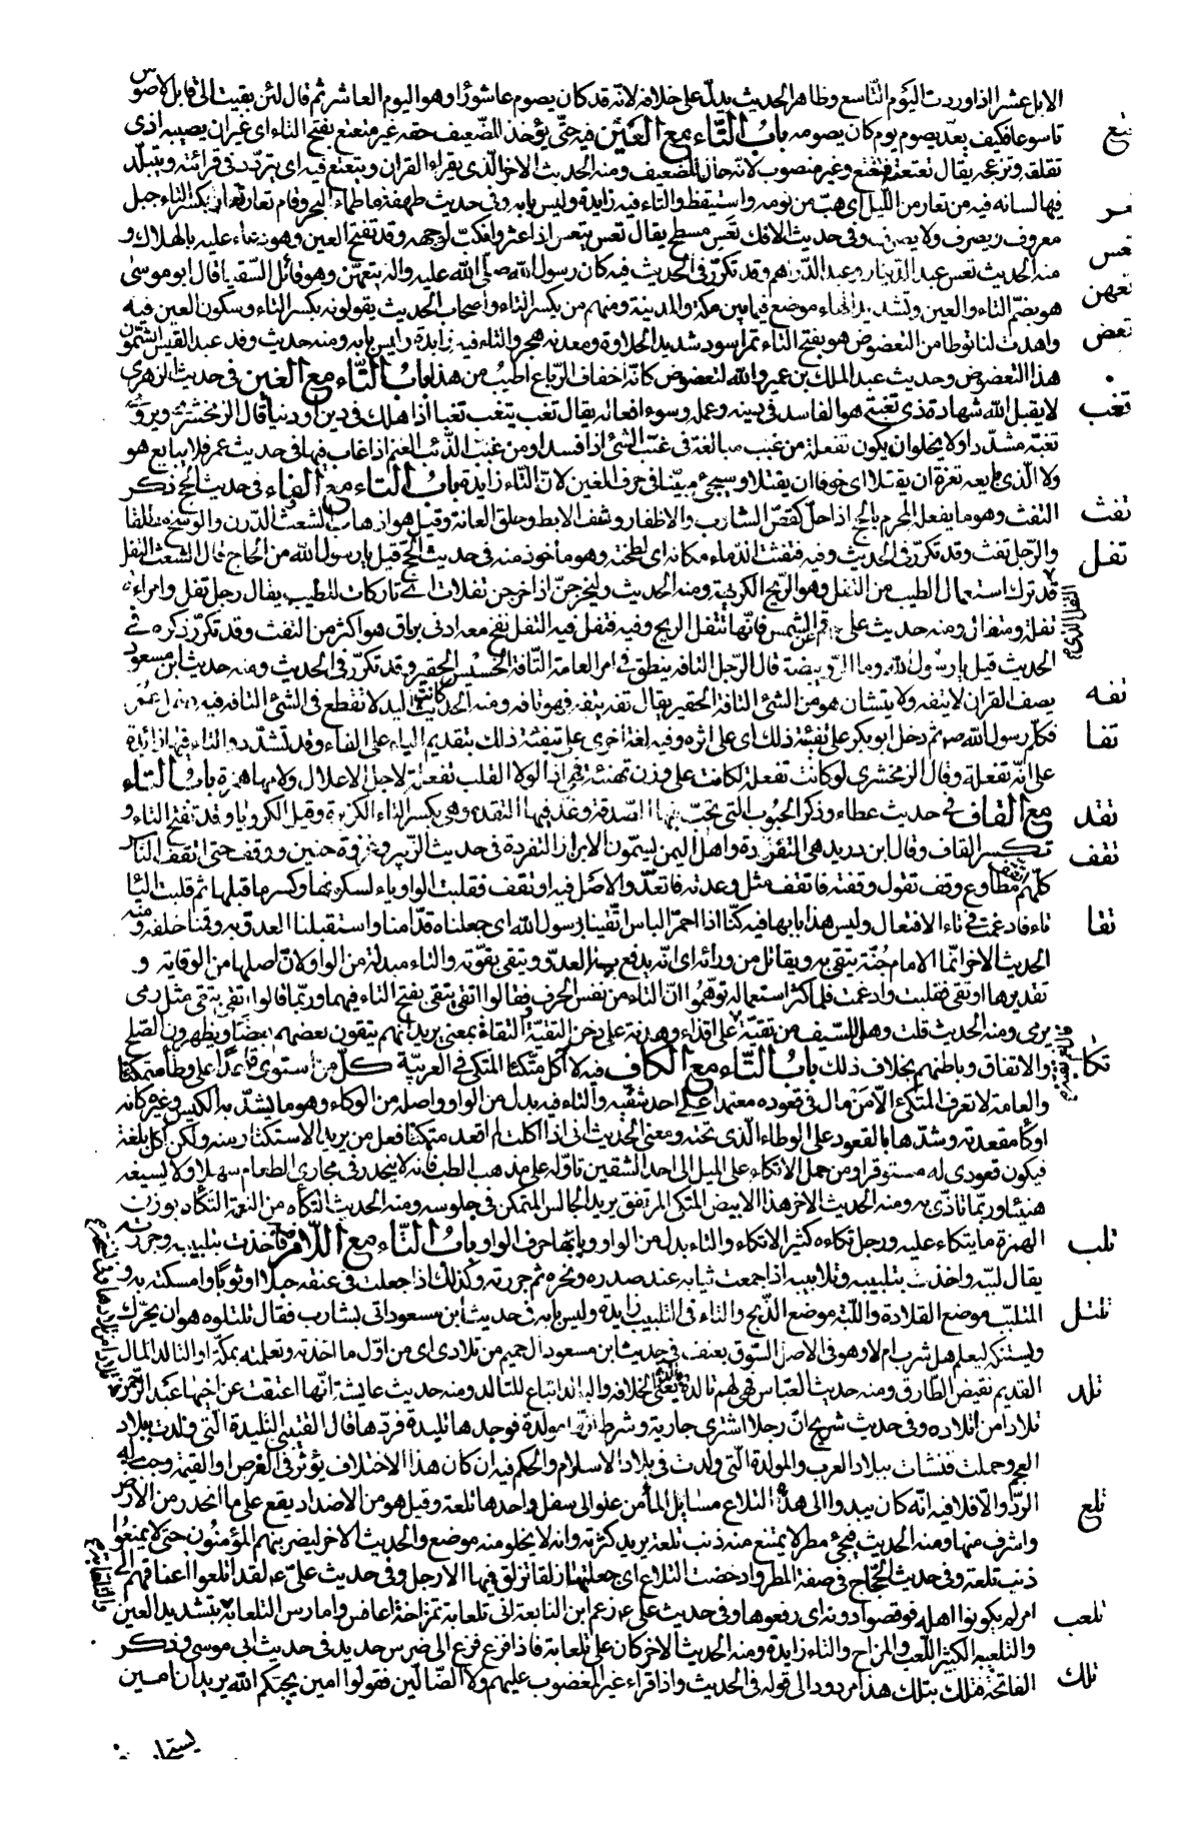 الابل عشرا اذا وردت اليوم التاسع وظاهر الحديث يدل على خلافه لانه قد كان يصوم عاشورا وهو اليوم العاشر ثم قال لئن بقيت الى قابل لاصومن
تاسوعا فكيف يعد بصوم يوم كان يصومه باب التاء مع العين فيه حتى يؤخذ للضعيف حقه غير متعتع بفتح التاء اى غير ان يصيبه اذى
تعتع
تقلقه وتزعجه يقال تعتعه فتتعتع وغير منصوب لانه حال للضعيف ومنه الحديث الاخر الذى يقراء القران ويتعتع فيه اى يتردد فى قرائته ويتبلد
فيها لسانه فيه من تعار من الليل اى هب من نومه واستيقظ والتاء فيه زايدة وليس بابه وفى حديث طهفة ما طما البحر وقام تعار تعار بكسر التاء جبل
تعر
معروف ويصرف ولا يصرف وفى حديث الافك تعس مسطح يقال تعس يتعس اذا عثر وانكب لوجهه وقد تفتح العين وهو دعاء عليه بالهلاك و
تعس
منه الحديث تعس عبد الدينار وعبد الدرهم وقد تكرر فى الحديث فيه كان رسول الله صلى الله عليه واله بتعهن وهو قائل السقيا قال ابو موسى
تعهن
هو بضم التاء والعين وتشديد الهاء موضع فيما بين مكة والمدينة ومنهم من يكسر التاء واصحاب الحديث يقولونه بكسر التاء وسكون العين فيه
تعض
واهدت لنا نوطا من التعضوض هو بفتح التاء تمر اسود شديد الحلاوة ومعدنه هجر والتاء فيه زايدة وليس بابه ومنه حديث وفد عبد القيس اتسمون
هذا التعضوض وحديث عبد الملك بن عمير والله لتعضوض كانه اخفاف الرباع اطيب من هذا باب التاء مع الغين فى حديث الزهرى
تغب
لا يقبل الله شهادة ذى تغبة هو الفاسد فى دينه وعمله وسوء افعاله يقال تغب يتغب تغبا اذا هلك فى دين او دنيا قال الزمخشرى ويروى
تغبة مشددا ولا يخلو ان يكون تفعلة من غبب مبالغة فى غب الشئ اذا فسد او من غبب الذئب الغنم اذا عاث فيها فى حديث عمر فلا يبايع هو
ولا الذى بايعه تغرة ان يقتلا اى خوفا ان يقتلا وسيجئ مبينا فى حرف الغين لان التاء زايدة باب التاء مع الفاء فى حديث الحج ذكر
تفث
التفث وهو ما يفعله المحرم بالحج اذا حل كقص الشارب والاظفار ونتف الابط وحلق العانة وقيل هو اذهاب الشعث والدرن والوسخ مطلقا
والرجل تفث وقد تكرر فى الحديث وفيه فتفثت الدماء مكانه اى لطخته وهو ماخوذ منه فى حديث الحج قيل يا رسول الله من الحاج قال الشعث التفل
تفل
التفل الذى
قد ترك استعمال الطيب من التفل وهو الريح الكريهة ومنه الحديث وليخرجن اذا خرجن تفلات اى تاركات للطيب يقال رجل تفل وامراءة
تفلة ومتفال ومنه حديث على قم عن الشمس فانها تتفل الريح وفيه فتفل فيه التفل نفخ معه ادنى بزاق هو اكثر من النفث وقد تكرر ذكره فى
الحديث قيل يا رسول الله وما الرويبضة قال الرجل التافه ينطق فى امر العامة التافه الخسيس الحقير وقد تكرر فى الحديث ومنه حديث ابن مسعود
تفه
يصف القران لا يتفه ولا يتشان هو من الشئ التافه الحقير يقال تفه يتفه فهو تافه ومنه الحديث كانت اليد لا تقطع فى الشئ التافه فيه دخل عمر
تفا
فكلم رسول الله صم ثم دخل ابو بكر على تفئة ذلك اى على اثره وفيه لغة اخرى على تيفئة ذلك بتقديم الياء على الفاء وقد تشدد والتاء فيها زائدة
على انه تفعلة وقال الزمخشرى لو كانت تفعلة لكانت على وزن تهنئة فهى اذا لولا القلب تفعلة لاجل الاعلال ولامها همزة باب التاء
مع القاف فى حديث عطاء وذكر الحبوب التى تجب فيها الصدقة وعد فيها التقدة وهى بكسر التاء الكزبرة وقيل الكرويا وقد تفتح التاء و
تقد
تكسر القاف وقال ابن دريد هى التقردة واهل اليمن يسمون الابزار التقردة فى حديث الزبير وغزوة حنين ووقف حتى اتقف الناس
تقف
كلهم مطاوع وقف تقول وقفته فاتقف مثل وعدته فاتعد والاصل فيه اوتقف فقلبت الواو ياء لسكونها وكسر ما قبلها ثم قلبت اليا
تاء فادغمت فى تاء الافتعال وليس هذا بابها فيه كنا اذا احمر الباس اتقينا برسول الله اى جعلناه قدامنا واستقبلنا العدو به وقمنا خلفه ومنه
تقا
الحديث الاخر انما الامام جنة يتقى به ويقاتل من ورائه اى انه يدفع به العدو ويتقى بقوته والتاء مبدلة من الواو لان اصلها من الوقاية و
تقديرها اوتقى فقلبت وادغمت فلما كثر استعماله توهموا ان التاء من نفس الحرف فقالوا اتقى يتقى بفتح التاء فيهما وربما قالوا تقى يتقى مثل رمى
يرمى ومنه الحديث قلت وهل للسيف من تقية قال نعم تقية على اقذاء وهدنة على دخن التقية والتقاة بمعنى يريد انهم يتقون بعضهم بعضا ويظهرون الصلح
والاتفاق وباطنهم بخلاف ذلك باب التاء مع الكاف فيه لا اكل متكئا المتكى فى العربية كل من استوى قاعدا على وطاء متمكنا
تكأ
والعامة لا تعرف المتكئ الا من مال فى قعوده معتمدا على احد شقيه والتاء فيه بدل من الواو واصله من الوكاء وهو ما يشد به الكيس وغيره كانه
اوكأ مقعدته وشدها بالقعود على الوطاء الذى تحته ومعنى الحديث انى اذا اكلت لم اقعد متمكنا فعل من يريد الاستكثار منه ولكن اكل بلغة
فيكون قعودى له مستوفزا ومن حمل الاتكاء على الميل الى احد الشقين تاوله على مذهب الطب فانه لا ينحدر فى مجارى الطعام سهلا ولا يسيغه
هنيئا وربما تاذى به ومنه الحديث الاخر هذا الابيض المتكئ المرتفق يريد الجالس المتمكن فى جلوسه ومنه الحديث التكأة من النعمة التكأة بوزن
الهمزة ما يتكاء عليه ورجل تكاءه كثير الاتكاء والتاء بدل من الواو وبابها حرف الواو باب التاء مع اللام فاخذت بتلبيبه وجررته
تلب
يقال لببه واخذت بتلبيبه وتلابيبه اذا جمعت ثيابه عند صدره ونحره ثم جررته وكذلك اذا جعلت فى عنقه حبلا او ثوبا وامسكته به و
المتلبب موضع القلادة واللبة موضع الذبح والتاء فى التلبيب زايدة وليس بابه فى حديث ابن مسعود اتى بشارب فقال تلتلوه هو ان يحرك
تلتل
ويستنكه ليعلم هل شرب ام لا وهو فى الاصل السوق بعنف فى حديث ابن مسعود ال حميم من تلادى اى من اول ما اخذته وتعلمته بمكة والتالد المال
القديم نقيض الطارف ومنه حديث العباس فهى لهم تالدة بالدة يعنى الخلافة والبالد اتباع للتالد ومنه حديث عايشة انها اعتقت عن اخيها عبد الرحمن
تلد
تلادا من اتلاده وفى حديث شريح ان رجلا اشترى جارية وشرط انها مولدة فوجدها تليدة فردها قال القتيبى التليدة التى ولدت ببلاد
العجم وحملت فنشات ببلاد العرب والمولدة التى ولدت فى بلاد الاسلام والحكم فيه ان كان هذا الاختلاف يؤثر فى الغرض او القيمة وجب له
الرد والا فلا فيه انه كان يبدو الى هذه التلاع مسايل الماء من علو الى سفل واحدها تلعة وقيل هو من الاضداد يقع على ما انحدر من الارض
تلع
واشرف منها ومنه الحديث فيجئ مطر لا يمتنع منه ذنب تلعة يريد كثرته وانه لا يخلو منه موضع والحديث الاخر ليضربنهم المؤمنون حتى لا يمنعوا
ذنب تلعة وفى حديث الحجاج فى صفة المطر وادحضت التلاع اى جعلتها زلقا تزلق فيها الارجل وفى حديث على ع لقد اتلعوا اعناقهم الى
امر لم يكونوا اهله فوقصوا دونه اى رفعوها وفى حديث على ع زعم ابن النابغة انى تلعابة تمزاحة اعافس وامارس التلعابة بتشديد العين
تلعب
والتلعيبة الكثير اللعب والمزاح والتاء زايدة ومنه الحديث الاخر كان على تلعابة فاذا فزع فزع الى ضرس حديد فى حديث ابى موسى وذكر
الفاتحة فتلك بتلك هذا مردود الى قوله فى الحديث واذا قراء غير المغضوب عليهم ولا الضالين فقولوا امين يحبكم الله يريد ان امين
تلك